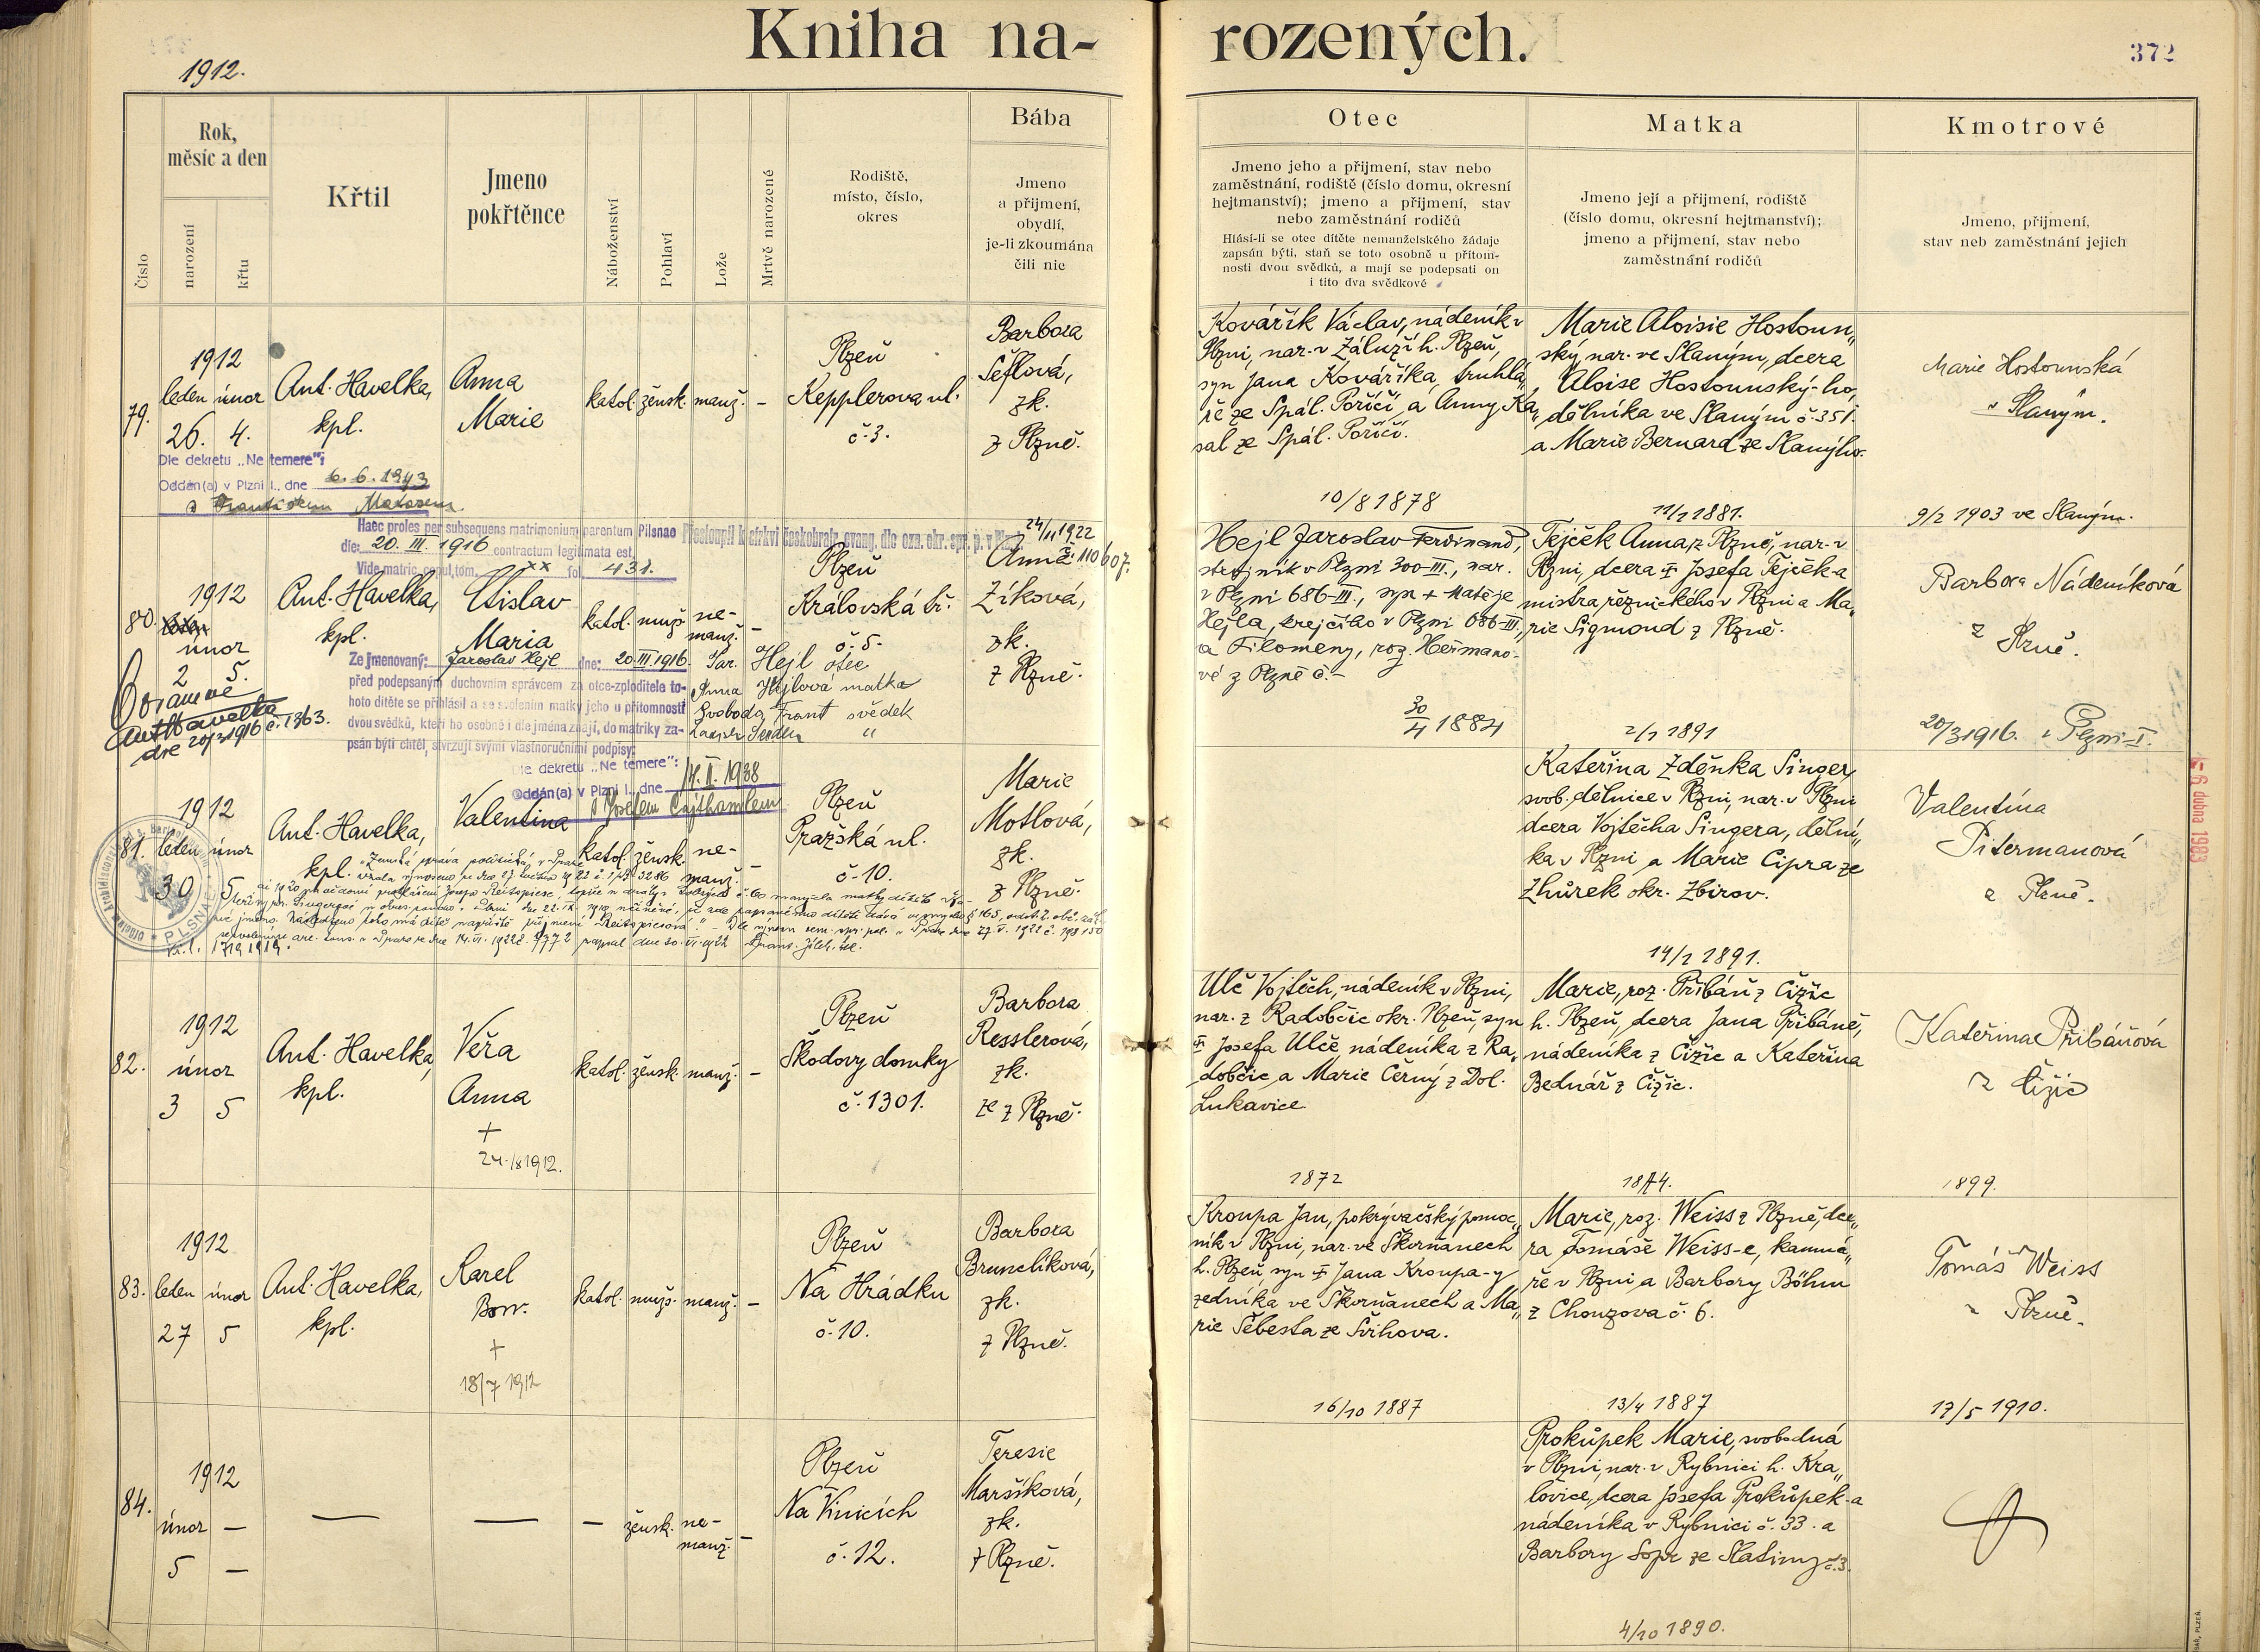 Kniha na- rozených.
372
1912.
Číslo
Rok,
měsíc a den
narození
křtu
Křtil
Jmeno
pokřtěnce
Náboženství
Pohlaví
Lože
Mrtvě narozené
Rodiště,
místo, číslo,
okres
Bába
Jmeno
a přijmení,
obydlí,
je-li zkoumána
čili nic
Otec
Jmeno jeho a přijmení, stav nebo
zaměstnání, rodiště (číslo domu, okresní
hejtmanství); jmeno a přijmení, stav
nebo zaměstnání rodičů
Hlásí-li se otec dítěte nemanželského žádaje
zapsán býti, staň se toto osobně u přítom-
nosti dvou svědků, a mají se podepsati on
i tito dva svědkové
Matka
Jmeno její a přijmení, rodiště
(číslo domu, okresní hejtmanství);
jmeno a přijmení, stav nebo
zaměstnání rodičů
Kmotrové
Jmeno, přijmení,
stav neb zaměstnání jejich
79.
1912
leden únor
26. 4.
Ant. Havelka,
kpl.
Anna
Marie
katol. žensk. manž. –
Plzeň
Kepplerova ul.
č. 3.
Barbora
Šeflová,
zk.
z Plzně.
Kovářík Václav, nádeník v
Plzni, nar. v Záluží h. Plzeň,
syn Jana Kováříka, truhlá„
ře ze Spál. Poříčí a Anny Ka„
sal ze Spál. Poříčí.
10/8 1878
Marie Aloisie Hostoun„
ský nar. ve Slaným, dcera
Aloise Hostounský-ho,
dělníka ve Slaným č. 351.
a Marie Bernard ze Slanýho.
1881.
Marie Hostounská
v Slaným.
9/2 1903 ve Slaným.
Dle dekretu „Ne temere":
Oddán(a) v Plzni I., dne 6. 6. 1943
s Františkem
Haec proles per subsequens matrimonium parentum Pilsnae
die: 20. III. 1916 contractum legitimata est,
Vide matric. copul. tom. XX fol. 431.
Přestoupil k církvi českobratr. evang. dle ozn. okr. spr. p. v Plz.
24/11 1922
80.
1912
únor
2 5.
Ant. Havelka,
kpl.
Ctislav
Maria
katol. muž. ne-
manž. –
Plzeň
Královská tř.
č. 5.
Anna
Zíková,
zk.
z Plzně.
Hejl Jaroslav Ferdinand,
strojník v Plzni 300-III., nar.
v Plzni 686-III., syn + Matěje
Hejla, krejčího v Plzni 686-III.,
a Filomeny, roz. Heřmano-
vé z Plzně č. –
30/4 1884
Tejček Anna, z Plzně, nar. v
Plzni, dcera + Josefa Tejček-a
mistra řeznického v Plzni a Ma„
rie Sigmond z Plzně.
2/1 1891
Barbora Nádeníková
z Plzně.
20/3 1916. v Plzni-I.
Ze jmenovaný: Jaroslav Hejl dne: 20. III. 1916.
před podepsaným duchovním správcem za otce-zploditele to-
hoto dítěte se přihlásil a se svolením matky jeho u přítomnosti
dvou svědků, kteří ho osobně i dle jména znají, do matriky za-
psán býti chtěl, stvrzují svými vlastnoručními podpisy:
Jar. Hejl otec
Anna Hejlová matka
Svoboda Frant svědek
Ant Havelka
dne 20/3 1916 č. 1363.
Dle dekretu „Ne temere":
Oddán(a) v Plzni I., dne 1938
s Josefem Cajthamlem
81.
1912
leden únor
30 5
Ant. Havelka,
kpl.
Valentina
katol. žensk. ne-
manž. –
Plzeň
Pražská ul.
č. 10.
Marie
Motlová,
zk.
z Plzně.
Kateřina Zděnka Singer,
svob. dělnice v Plzni, nar. v Plzni
dcera Vojtěcha Singera, dělní„
ka v Plzni a Marie Cipra ze
Zhůrek okr. Zbirov.
14/1 1891.
Valentina
Pitermanová
z Plzně.
6 dubna 1983
82.
1912
únor
3 5
Ant. Havelka,
kpl.
Věra
Anna
+
24./8 1912.
katol. žensk. manž. –
Plzeň
Škodovy domky
č. 1301.
Barbora
Resslerová,
zk.
ze z Plzně.
Ulč Vojtěch, nádeník v Plzni,
nar. z Radobčic okr. Plzeň, syn
+ Josefa Ulče nádeníka z Ra„
dobčic a Marie Černý z Dol.
Lukavice
1872
Marie, roz. Přibáň z Čižic
h. Plzeň, dcera Jana Přibáně,
nádeníka z Čižic a Kateřina
Bednář z Čižic.
Kateřina Přibáňová
z Čižic
1899.
83.
1912
leden únor
27 5
Ant. Havelka,
kpl.
Karel
Bon.
+
18/7 1912
katol. muž. manž. –
Plzeň
Na Hrádku
č. 10.
Barbora
Brunclíková,
zk.
z Plzně.
Kroupa Jan, pokrývačský pomoc„
ník v Plzni, nar. ve Škvrňanech
h. Plzeň, syn + Jana Kroupa-y
zedníka ve Škvrňanech a Ma„
rie Šebesta ze Švihova.
16/10 1887
Marie, roz. Weiss z Plzně, dce„
ra Tomáše Weiss-e, kamná„
ře v Plzni a Barbory Böhm
z Chouzova č. 6.
13/4 1887
Tomáš Weiss
z Plzně.
17/5 1910.
84.
1912
únor –
5 –
— — – žensk. ne-
manž. –
Plzeň
Na Vinicích
č. 12.
Teresie
Maršíková,
zk.
z Plzně.
Prokůpek Marie, svobodná
v Plzni, nar. v Rybnici h. Kra„
lovice, dcera Josefa Prokůpek-a
nádeníka v Rybnici č. 33. a
Barbory Sopr ze Slatiny č. 3.
4/10 1890.